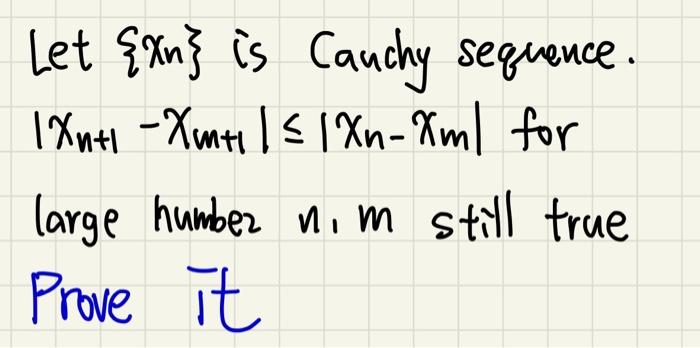 Let {xn} is Cauchy sequence.
|xn+1 - xm+1| ≤ |xn - xm| for
large number n, m still true
Prove it